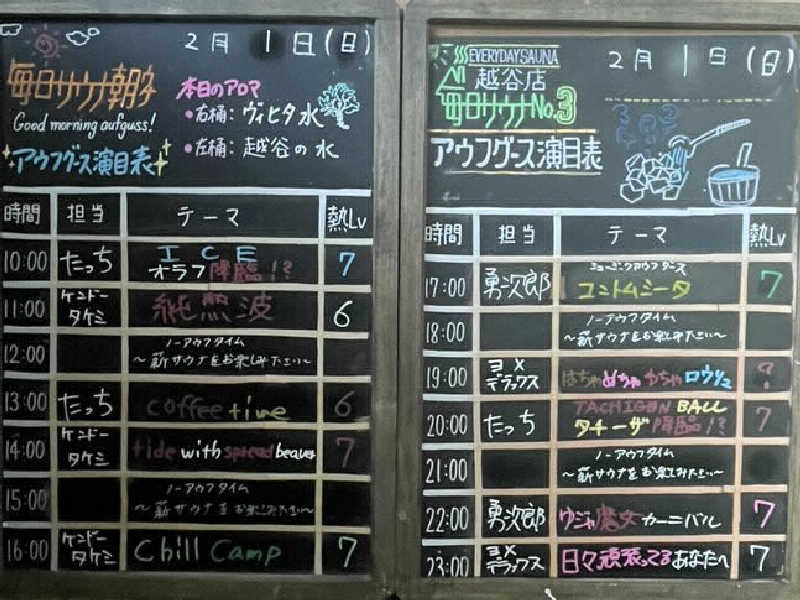 2月 1日(日)
毎日サウナ朝タ
Good morning aufguss!
アウフグース演目表
本日のアロマ
・右桶: ヴィヒタ水
・左桶: 越谷の水
時間 担当 テーマ 熱Lv
10:00 たっち ICE オラフ降臨!? 7
11:00 ケンドータケミ 純熱波 6
12:00 ノーアウフタイム
～薪サウナをお楽しみ下さい～
13:00 たっち coffee time 6
14:00 ケンドータケミ tide with spread beaver 7
15:00 ノーアウフタイム
～薪サウナをお楽しみ下さい～
16:00 ケンドータケミ Chill Camp 7
2月 1日(日)
EVERYDAY SAUNA
越谷店
毎日サウナNo.3
アウフグース演目表
時間 担当 テーマ 熱Lv
17:00 勇次郎 ミュージックアウフグース
ユニドムシータ 7
18:00 ノーアウフタイム
～薪サウナをお楽しみ下さい～
19:00 ヨメデラックス はちゃめちゃわちゃロウリュ ?
20:00 たっち TACHIGON BALL
タチーザ降臨!? 7
21:00 ノーアウフタイム
～薪サウナをお楽しみ下さい～
22:00 勇次郎 ウジャ魔女カーニバル 7
23:00 ヨメデラックス 日々頑張ってるあなたへ 7